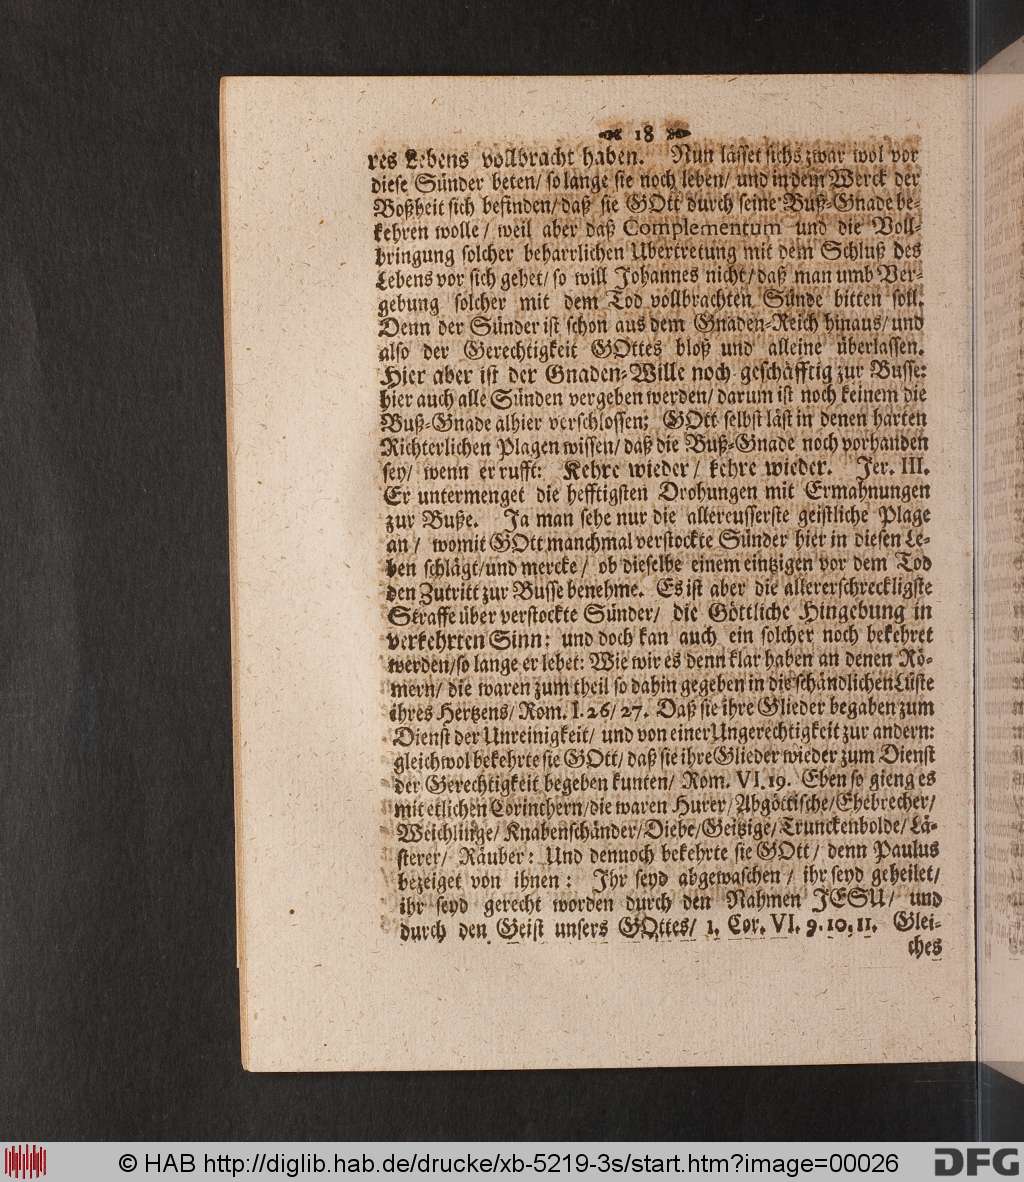 18
res Lebens vollbracht haben. Nun lässet sichs zwar wol vor
diese Sünder beten/ so lange sie noch leben/ und in dem Werck der
Boßheit sich befinden/ daß sie GOtt durch seine Buß-Gnade be-
kehren wolle/ weil aber daß Complementum und die Voll-
bringung solcher beharrlichen Ubertretung mit dem Schluß des
Lebens vor sich gehet/ so will Johannes nicht/ daß man umb Ver-
gebung solcher mit dem Tod vollbrachten Sünde bitten soll.
Denn der Sünder ist schon aus dem Gnaden-Reich hinaus/ und
also der Gerechtigkeit GOttes bloß und alleine überlassen.
Hier aber ist der Gnaden-Wille noch geschäfftig zur Busse:
hier auch alle Sünden vergeben werden/ darum ist noch keinem die
Buß-Gnade alhier verschlossen: GOtt selbst läst in denen harten
Richterlichen Plagen wissen/ daß die Buß-Gnade noch vorhanden
sey/ wenn er rufft: Kehre wieder/ kehre wieder. Jer. III.
Er untermenget die hefftigsten Drohungen mit Ermahnungen
zur Buße. Ja man sehe nur die allereusserste geistliche Plage
an/ womit GOtt manchmal verstockte Sünder hier in diesen Le-
ben schlägt/ und mercke/ ob dieselbe einem eintzigen vor dem Tod
den Zutritt zur Busse benehme. Es ist aber die allererschreckligste
Straffe über verstockte Sünder/ die Göttliche Hingebung in
verkehrten Sinn: und doch kan auch ein solcher noch bekehret
werden/ so lange er lebet: Wie wir es denn klar haben an denen Rö-
mern/ die waren zum theil so dahin gegeben in die schändlichen Lüste
ihres Hertzens/ Rom. I. 26/ 27. Daß sie ihre Glieder begaben zum
Dienst der Unreinigkeit/ und von einer Ungerechtigkeit zur andern:
gleichwol bekehrte sie GOtt/ daß sie ihre Glieder wieder zum Dienst
der Gerechtigkeit begeben kunten/ Rom. VI. 19. Eben so gieng es
mit etlichen Corinthern/ die waren Hurer/ Abgöttische/ Ehebrecher/
Weichlinge/ Knabenschänder/ Diebe/ Geitzige/ Trunckenbolde/ Lä-
sterer/ Räuber: Und dennoch bekehrte sie GOtt/ denn Paulus
bezeiget von ihnen: Ihr seyd abgewaschen/ ihr seyd geheilet/
ihr seyd gerecht worden durch den Nahmen JESU/ und
durch den Geist unsers GOttes/ 1. Cor. VI. 9. 10. 11. Glei-
ches
© HAB http://diglib.hab.de/drucke/xb-5219-3s/start.htm?image=00026
DFG